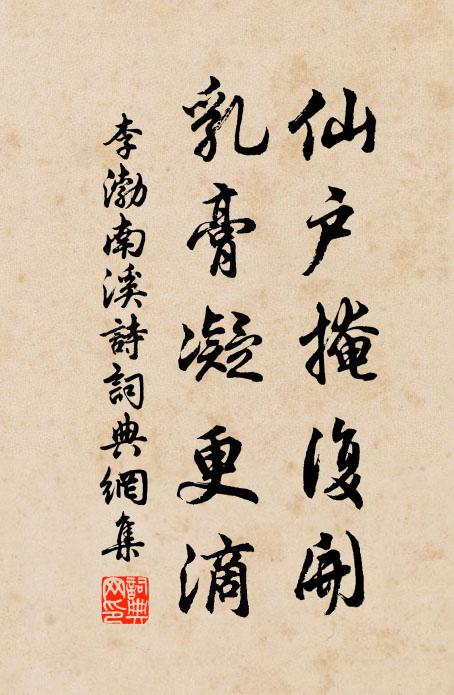 仙户掩復開
乳膏凝更滴
李渤南溪詩詞典網集
詞典網印